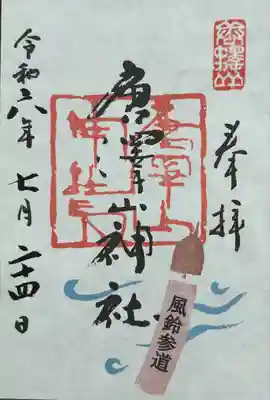 唐澤山
奉拝
唐澤山神社
令和六年 七月 二十四日
風鈴参道